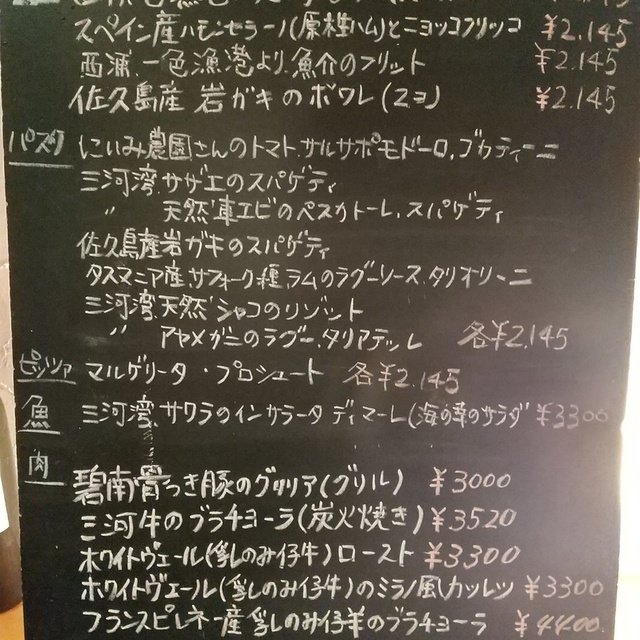 スペイン産ハモンセラーノ(原種ハム)とニョッコフリッコ ¥2.145
西浦、一色漁港より、魚介のフリット ¥2.145
佐久島産 岩ガキのボワレ(2ヨ) ¥2.145
パスタ にいみ農園さんのトマト、サルサポモドーロ、ブカティーニ
三河湾、サザエのスパゲティ
〃 天然車エビのペスカトーレ、スパゲティ
佐久島産岩ガキのスパゲティ
タスマニア産、サフォーク種、ラムのラグーソース、タリオリーニ
三河湾、天然シャコのリゾット
〃 アヤメガニのラグー、タリアテッレ 各¥2.145
ピッツァ マルゲリータ・プロシュート 各¥2.145
魚 三河湾、サワラのインサラータ ディマーレ(海の幸のサラダ ¥3300
肉
碧南骨つき豚のグリリア(グリル) ¥3000
三河牛のブラチョーラ(炭火焼き) ¥3520
ホワイトヴェール(乳のみ仔牛)ロースト ¥3300
ホワイトヴェール(乳のみ仔牛)のミラノ風カツレツ ¥3300
フランスピレネー産乳のみ仔羊のブラチョーラ ¥4400.